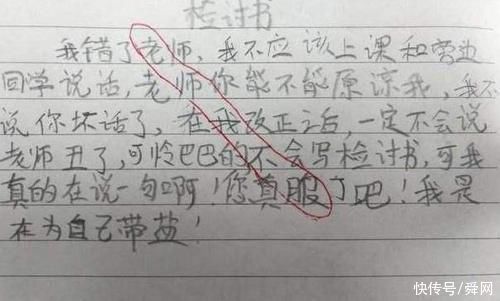 检讨书
我错了老师,我不应该上课和旁边
同学说话,老师你能不能原凉我,我不
说你坏话了,在我改正之后,一定不会说
老师丑了,可怜巴巴的不会写检讨书,可我
真的在说一句啊!您真服了吧!我是
在为自己带盐!
快传号/舜网